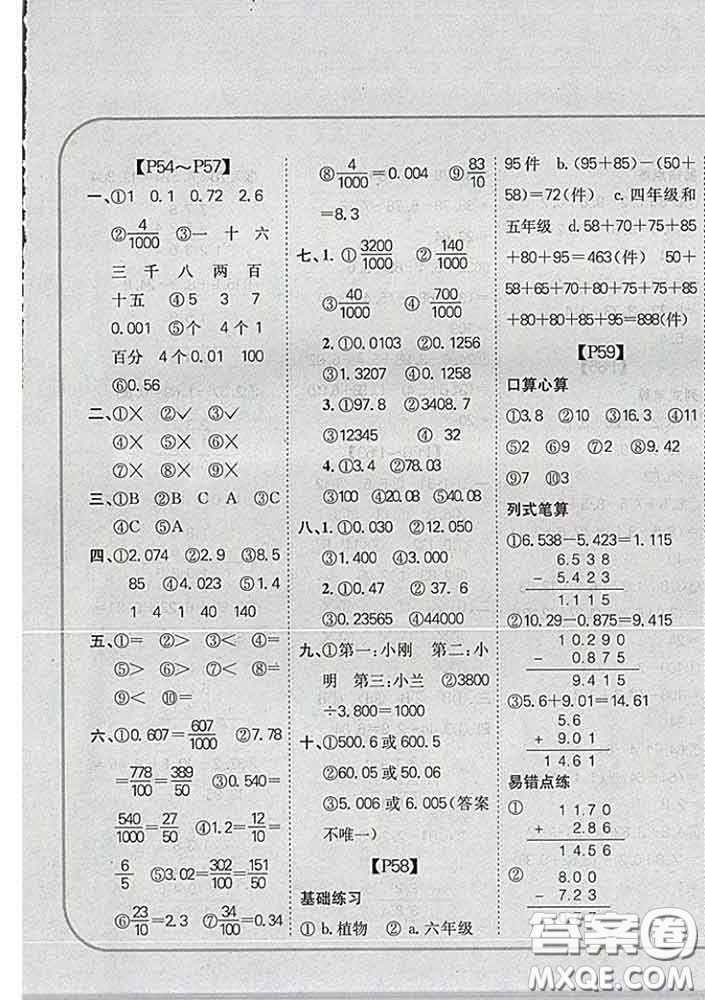 【P54～P57】
一、①1 0.1 0.72 2.6
②4/1000 ③一 十 六
三 千 八 两 百
十五 ④5 3 7
0.001 ⑤个 4个 1
百分 4个0.01 100
⑥0.56
二、①× ②✓ ③✓
④× ⑤× ⑥×
⑦× ⑧× ⑨×
三、①B ②B C A ③C
④C ⑤A
四、①2.074 ②2.9 ③8.5
85 ④4.023 ⑤1.4
1 4 1 40 140
五、①= ②> ③< ④=
⑤> ⑥> ⑦< ⑧=
⑨< ⑩=
六、①0.607=607/1000 ②7.78
=778/100=389/50 ③0.540=
540/1000=27/50 ④1.2=12/10=
6/5 ⑤3.02=302/100=151/50
⑥23/10=2.3 ⑦34/100=0.34
⑧4/1000=0.004 ⑨83/10
=8.3
七、1. ①3200/1000 ②140/1000
③40/1000 ④700/1000
2. ①0.0103 ②0.1256
③1.3207 ④0.1258
1. ①97.8 ②3408.7
③12345 ④32
1. ①3.4 ②78.03
③100 ④20.40 ⑤40.08
八、1. ①0.030 ②12.050
③1.400 ④3.000
2. ①0.47 ②37.6
③0.23565 ④44000
九、①第一:小刚 第二:小
明 第三:小兰 ②3800
÷3.800=1000
十、①500.6或600.5
②60.05或50.06
③5.006或6.005(答案
不唯一)
【P58】
基础练习
①b.植物 ②a.六年级
95件 b.(95+85)-(50+
58)=72(件) c.四年级和
五年级 d.58+70+75+85
+80+95=463(件) 50+
58+65+70+80+60+75+
85+80+85+95+95=898(件)
【P59】
口算心算
①3.8 ②10 ③16.3 ④11
⑤2 ⑥9 ⑦2 ⑧9.42
⑨7 ⑩3
列式笔算
①6.538-5.423=1.115
6.538
- 5.423
1.115
②10.29-0.875=9.415
10.290
- 0.875
9.415
③5.6+9.01=14.61
5.6
+ 9.01
14.61
易错点练
①
11.70
+ 2.86
14.56
②
8.00
- 7.23
答案圈
MXQE.COM